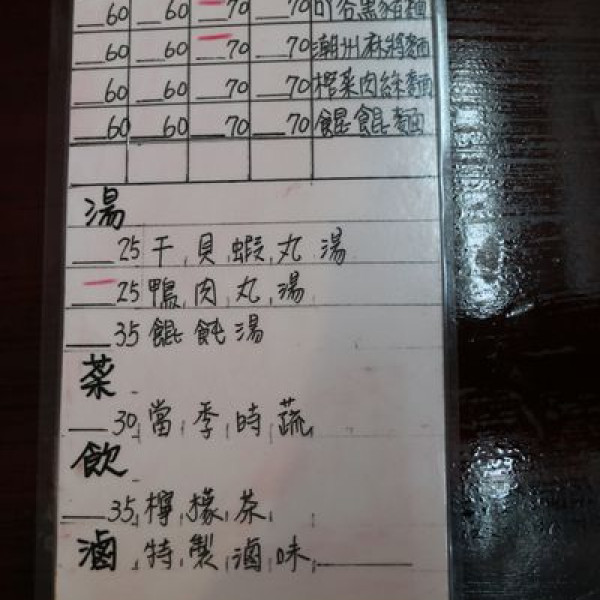 60 60 70 70 叻沙黑豬麵
60 60 70 70 潮州麻將麵
60 60 70 70 榨菜肉絲麵
60 60 70 70 餛餛麵
湯
25 干貝蝦丸湯
25 鴨肉丸湯
35 餛飩湯
菜
30 當季時蔬
飲
35 檸檬茶
滷 特製滷味